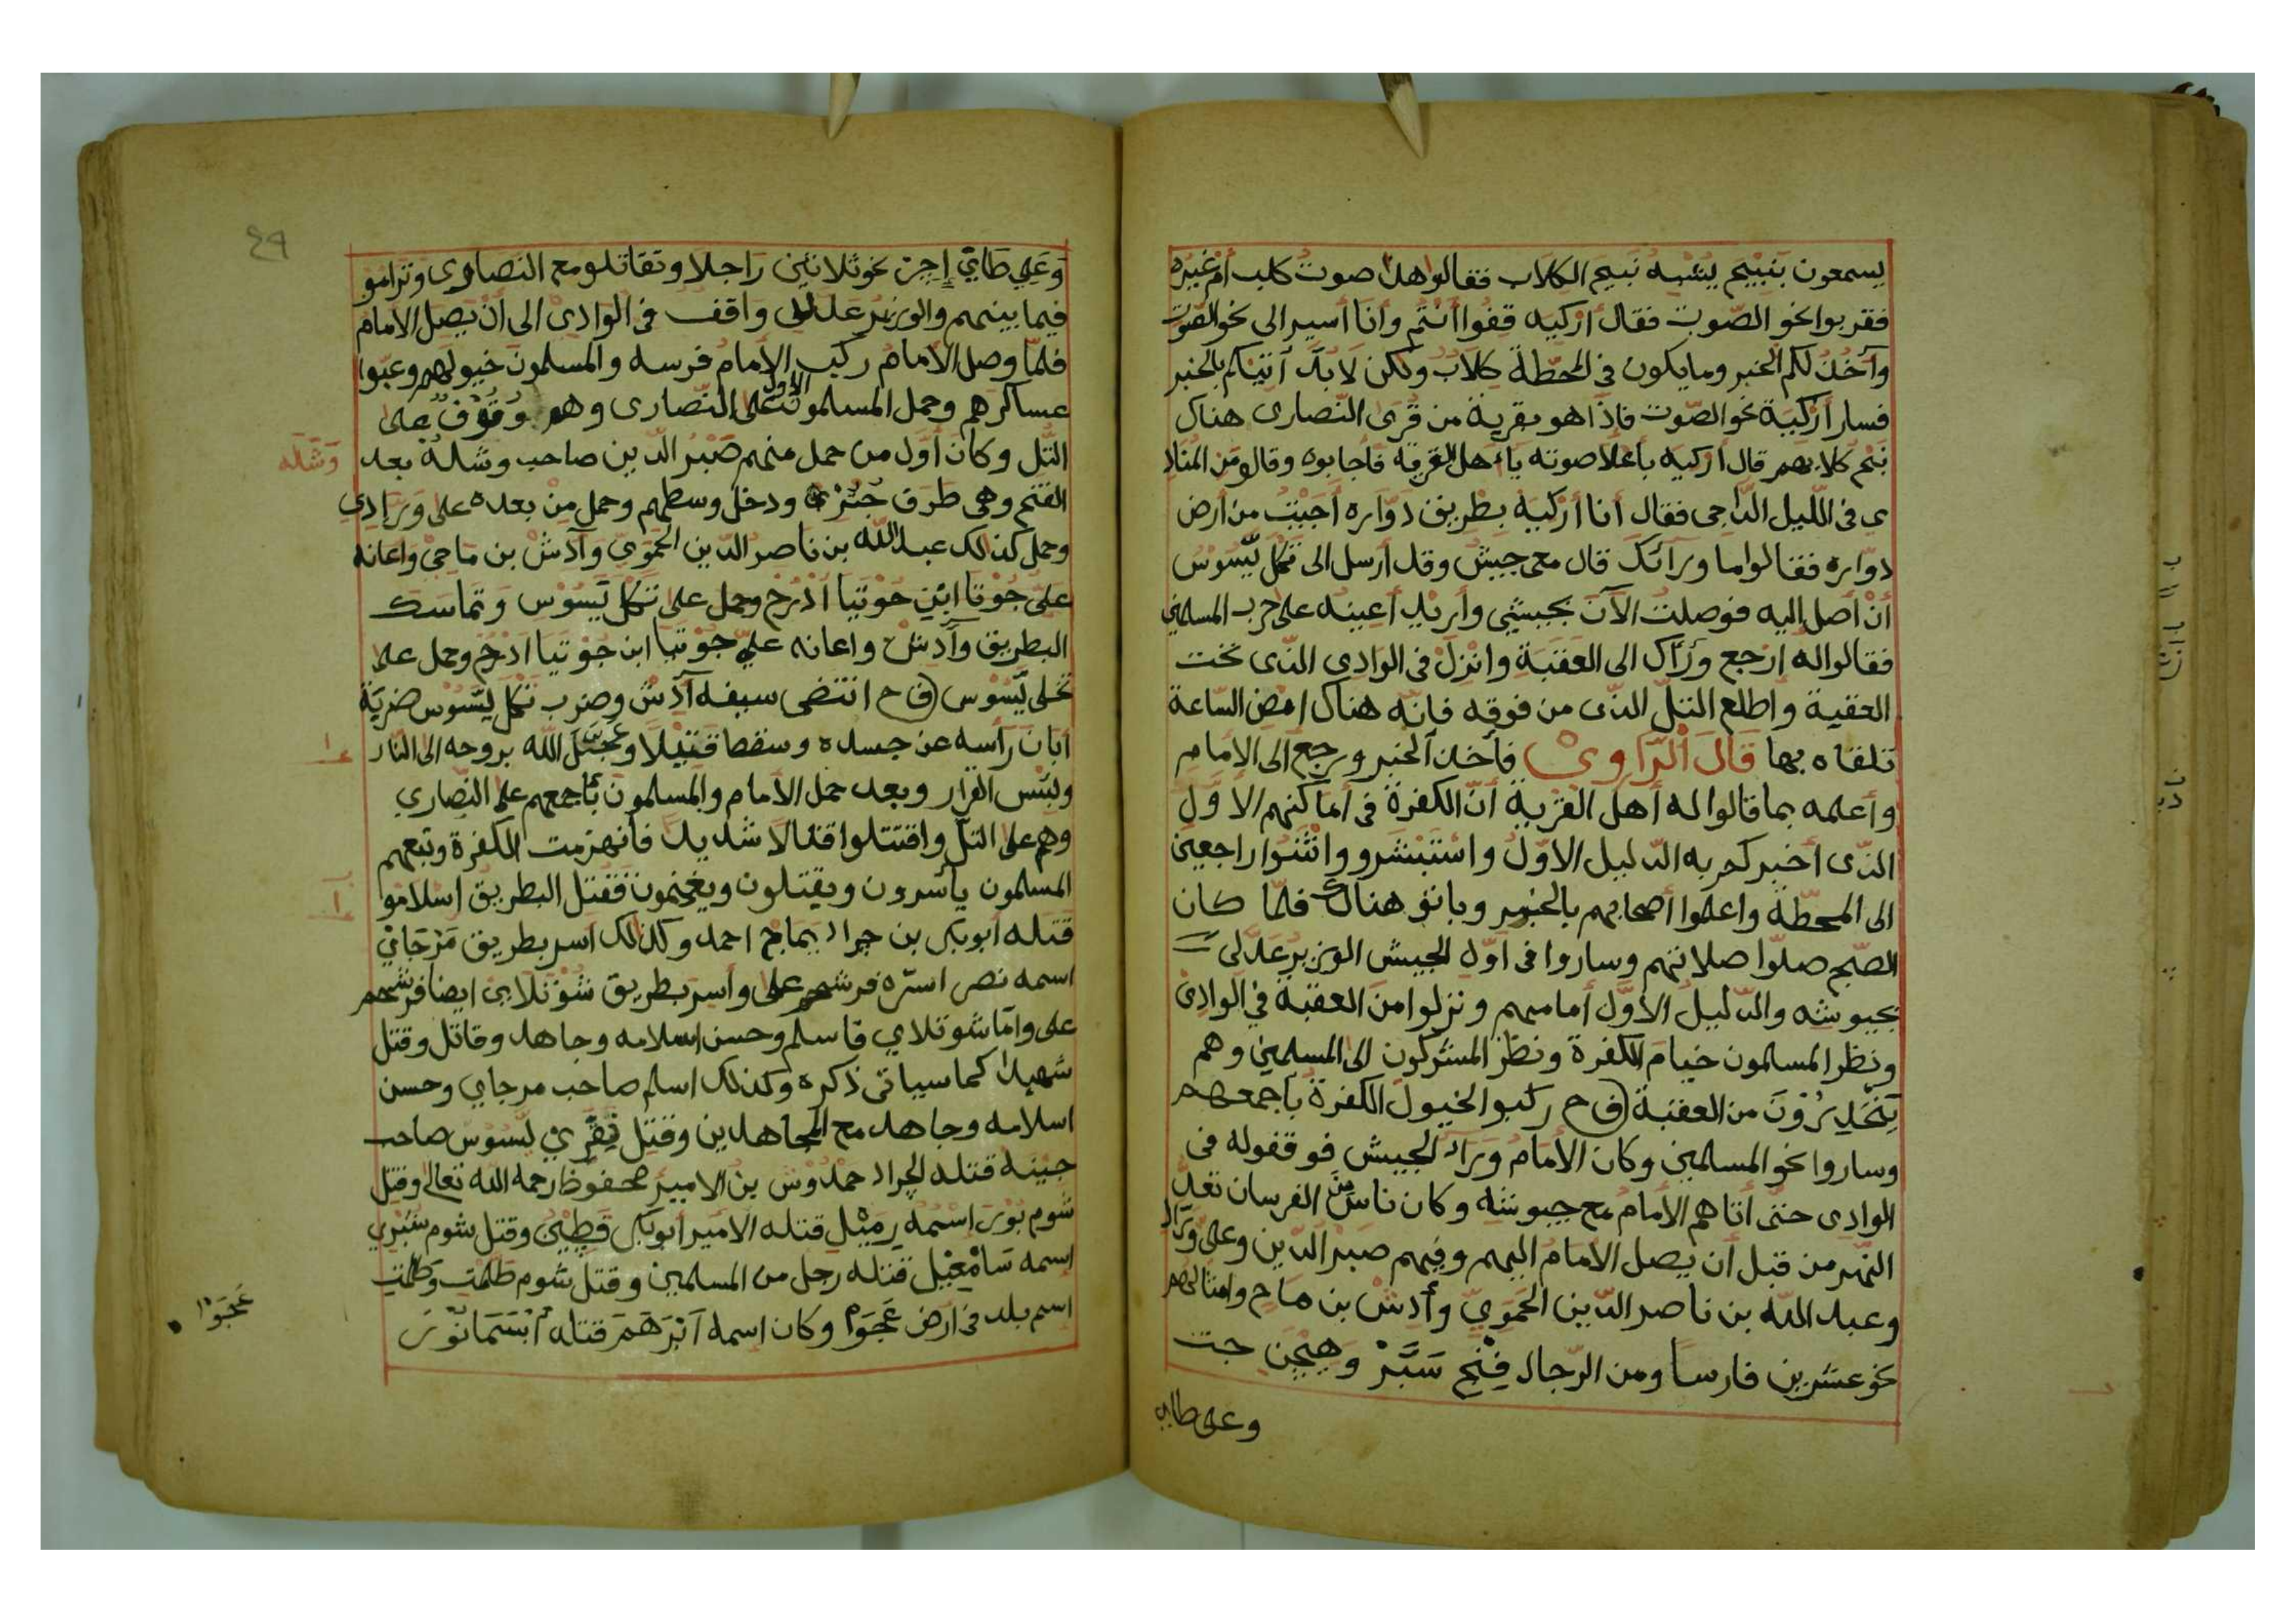 يسمعون بنبيح يشبه نبيح الكلاب فقالوا هذا صوت كلب أم غيره
فقربوا نحو الصّوت فقال أزكيه قفوا أنتم وأنا أسير الى نحو الصوت
وآخذ لكم الخبر وما يكون في المحطّة كلاب ولكن لا بدّ آتيكم بالخبر
فسار أزكية نحو الصّوت فاذا هو بقرية من قرى النّصارى هناك
نبح كلابهم قال أزكيه بأعلا صوته يا أهل القرية فأجابوه وقالو من المناد
ي في اللّيل الداجى فقال أنا أزكيه بطريق دوّاره أجيت من أرض
دوّاره فقالوا ما ورائك قال معى جيش وقد أرسل الى تكل يّسوس
أن أصل اليه فوصلت الآن بجيشى وأريد أعينه على حرب المسلمين
فقالوا له إرجع ورآك الى العقبة وانزل في الوادى الذى تحت
العقبة واطلع التلّ الذى من فوقه فانّه هناك امض الساعة
تلقاه بها قال الرّاوى فأخذ الخبر ورجع الى الامام
وأعلمه بما قالوا له أهل القرية أنّ الكفرة فى أماكنهم الاوّل
الذى أخبركم به الدليل الاوّل واستبشرو وانثنوا راجعين
الى المحطّة واعلموا أصحابهم بالخبر وباتو هناك فلمّا كان
الصّبح صلّوا صلاتهم وساروا فى اوّل الجيش الوزير عدلى
بجيوشه والدّليل الاوّل أمامهم ونزلوا من العقبة في الوادى
ونظر المسلمون خيام الكفرة ونظر المشركون الى المسلمين وهم
ينحدرون من العقبة (ف ح ركبوا الخيول الكفرة بأجمعهم
وساروا نحو المسلمين وكان الامام ورآء الجيش فوقفوله فى
الوادى حتى أتاهم الأمام مع جيوشه وكان ناس من الفرسان تعدّ
النهر من قبل أن يصل الامام اليهم وفيهم صبر الدّين وعلى ورّاد
وعبد اللّه بن ناصر الدّين الحموىّ وأدش بن ماح وامثالهم
نحو عشرين فارسا ومن الرّجال فنح سبّر وهيجن جت
وعلى طاى
٤٩
وعلى طاىّ إجن نحو ثلاثين راجلا وتقاتلو مع النصارى وترامو
فيما بينهم والوزير عدلى واقف فى الوادى الى ان يصل الامام
فلمّا وصل الامام ركب الامام فرسه والمسلمون خيولهم وعبّوا
عساكرهم وحمل المسلمون الاول على النّصارى وهم وقوف على
التّل وكان أوّل من حمل منهم صبر الدّين صاحب وشله بعد
وشله
الفتح وهى طرف جنزه ودخل وسطهم وحمل من بعده على ورّادى
وحمل كذلك عبد اللّه بن ناصر الدّين الحموىّ وآدش بن ماحى واعانه
علىّ جوتا ابن جوتيا اذرح وحمل على تكل يّسوس وتماسك
البطريق وآدش واعانه علىّ جوتيا ابن جوتيا ادرح وحمل على
تخلى يّسوس (ف ح انتضى سيفه آدش وضرب تكل ليّسوس ضربة
أبان رأسه عن جسده وسقط قتيلا وعجل اللّه بروحه الى النار
وبئس القرار وبعد حمل الامام والمسلمون بأجمعهم على النّصارى
وهم على التلّ واقتتلوا قتالا شديدا فانهزمت الكفرة وتبعهم
المسلمون يأسرون ويقتلون ويغنمون فقتل البطريق اسلامو
قتله أبوبكر بن جراد يماج احمد وكذلك اسر بطريق مرجاىّ
اسمه نصر اسره فرشحم على وأسر بطريق شوتلاى ايضا فرشحم
على وامّا شوتلاي فاسلم وحسن اسلامه وجاهد وقاتل وقتل
شهيدا كما سيأتى ذكره وكذلك اسلم صاحب مرجاي وحسن
اسلامه وجاهد مع المجاهدين وقتل نقرى ليّسوس صاحب
جينه قتله الجراد حمدوش بن الامير محفوظ رحمه الله تعالى وقتل
شوم بور اسمه رمبل قتله الامير أبوبكر قطين وقتل شوم شبرى
اسمه سامعيل قتله رجل من المسلمين وقتل شوم طلمت وطلمت
اسم بلد فى ارض عجوا وكان اسمه آبرهم قتله ابسمانور
عجوا